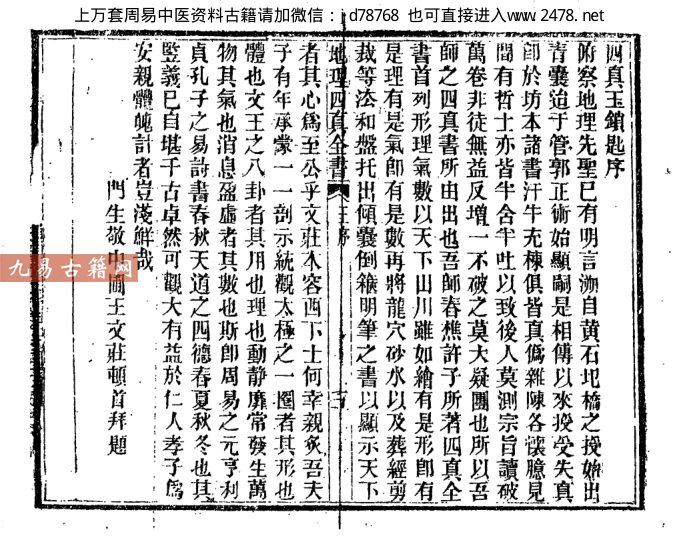 上万套周易中医资料古籍请加微信：jd78768 也可直接进入www.2478.net
四真玉鎖匙序
俯察地理先聖已有明言泝自黃石圯橋之授始出
青囊迨于管郭正術始顯嗣是相傳以來授受失真
即於坊本諸書汗牛充棟俱皆真僞雜陳各懷臆見
間有哲士亦皆半含半吐以致後人莫測宗旨讀破
萬卷非徒無益反增一不破之莫大疑團也所以吾
師之四真書所由出也吾師春樵許子所著四真全
書首列形理氣數以天下山川雖如繪有是形即有
是理有是氣即有是數再將龍穴砂水以及葬經剪
裁等法和盤托出傾囊倒籙明筆之書以顯示天下
地理四真全書 王序
者其心爲至公乎文莊本容西下士何幸親炙吾夫
子有年承蒙一一剖示統觀太極之一圈者其形也
體也文王之八卦者其用也理也動靜靡常發生萬
物其氣也消息盈虛者其數也斯即周易之元亨利
貞孔子之易詩書春秋天道之四德春夏秋冬也其
竪義已自堪千古卓然可觀大有益於仁人孝子爲
安親體魄計者豈淺鮮哉
門生敬中圃王文莊頓首拜題
九易古籍网